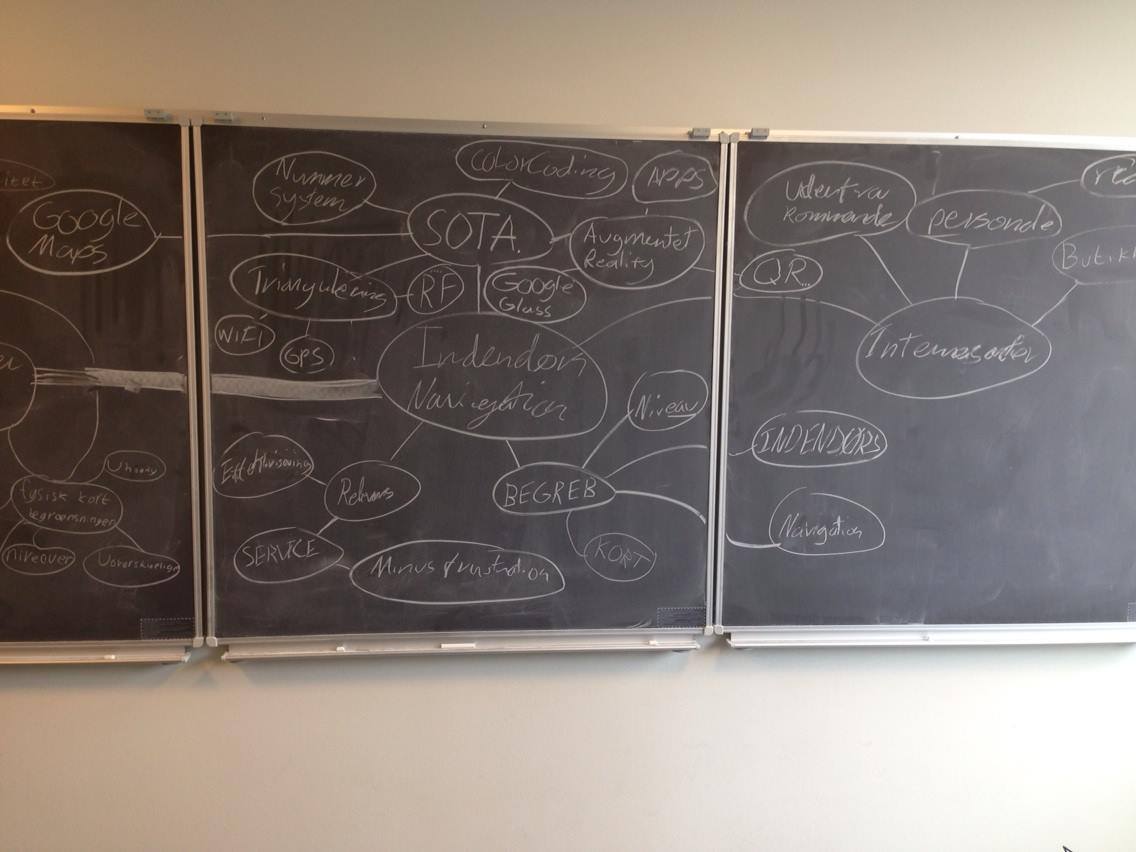 Google
Maps
fysisk kort
begrænsninger
niveauer
Nummer
System
ColorCoding
APPS
SOTA.
Augmentet
Reality
Triangulering
RF
Google
Glass
WIFI
GPS
Indendørs
Navigation
Niveau
BEGREB
KORT
SERVICE
Minus frustration
Udefra
Kommende
personale
Butikk
QR...
Interessenter
INDENDØRS
Navigation